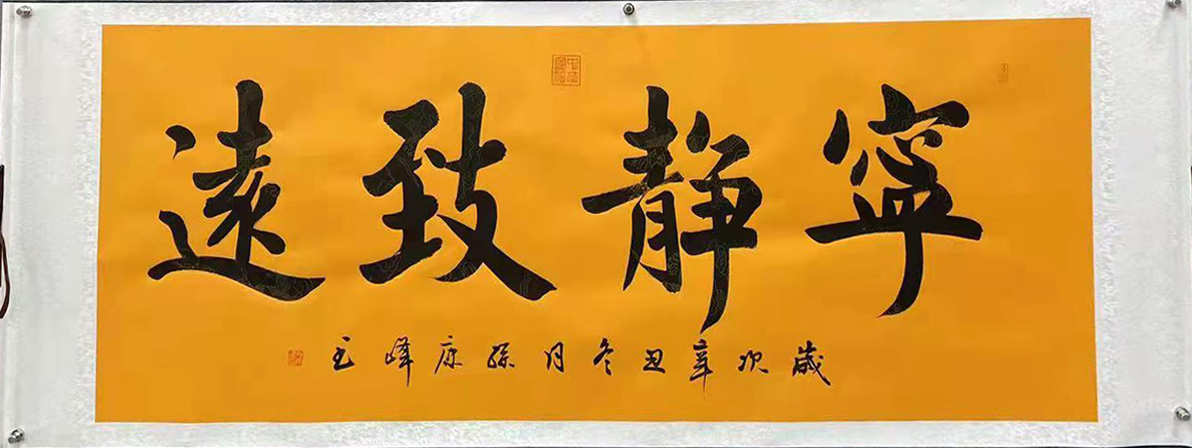 寧静致遠
歲次辛丑冬月孫康峰书